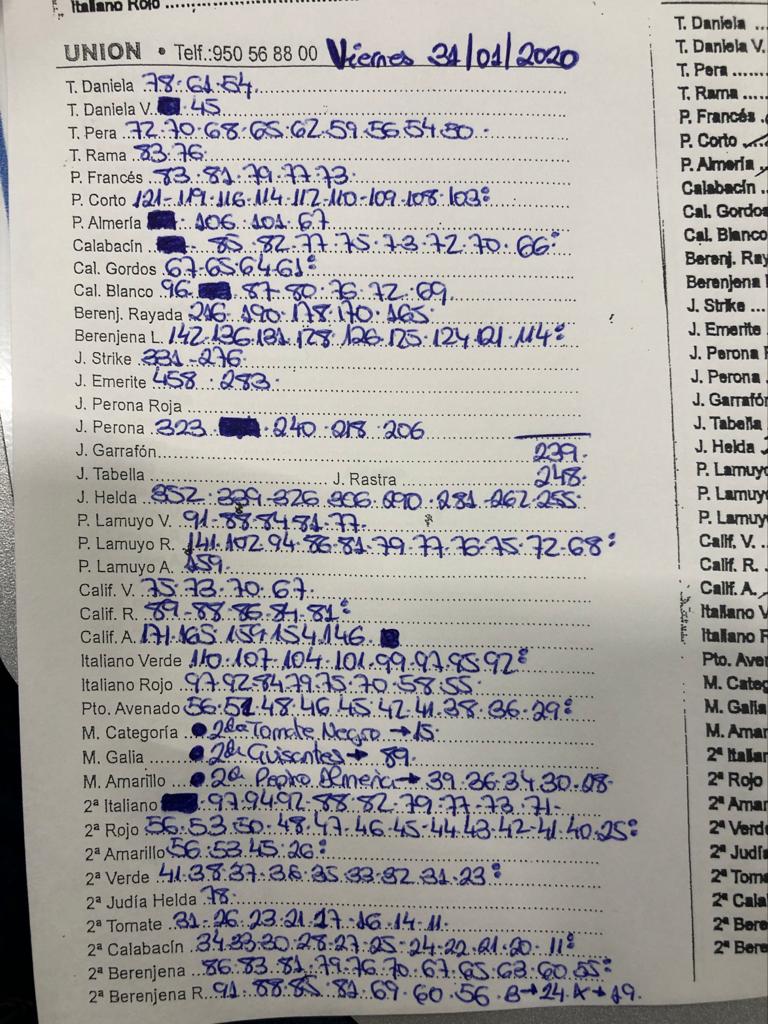 Italiano Rojo
UNION • Telf.:950 56 88 00 Viernes 31/01/2020
T. Daniela 78·61·54
T. Daniela V. 45
T. Pera 72·70·68·65·62·59·56·54·50
T. Rama 83·76
P. Francés 83·81·79·77·73
P. Corto 121-119·116·114·112·110-109·108·103
P. Almería 106·101·67
Calabacín 85·82·77·75·73·72·70·66
Cal. Gordos 67·65·64·61
Cal. Blanco 96 87·80·76·72·69
Berenj. Rayada 216·190·178·170·165
Berenjena L. 142·136·131·128·126·125·124·121·114
J. Strike 331-276
J. Emerite 458·283
J. Perona Roja
J. Perona 323 240·218·206
J. Garrafón 239
J. Tabella J. Rastra 248
J. Helda 352·339·326·306·290·281·262·255
P. Lamuyo V. 91-88·84·81·77
P. Lamuyo R. 141·102·94·86·81·79·77·76·75·72·68
P. Lamuyo A. 159
Calif. V. 75·73·70·67
Calif. R. 89-88·86·84·81
Calif. A. 171·165·159·154·146
Italiano Verde 110·107·104·101·99·97·95·92
Italiano Rojo 97·92·84·79·75·70·58·55
Pto. Avenado 56·51·48·46·45·42·41·38·36·29
M. Categoría 2da Tomate Negro → 15
M. Galia 2da Guisantes → 89
M. Amarillo 2da Pepino Almeria → 39·36·34·30·28
2ª Italiano 97·94·92·88·82·79·77·73·71
2ª Rojo 56·53·50·48·47·46·45·44·43·42·41·40·25
2ª Amarillo 56·53·45·26
2ª Verde 41·38·37·36·35·33·32·31·23
2ª Judía Helda 78
2ª Tomate 31-26·23·21·17·16·14·11
2ª Calabacín 34·33·30·28·27·25·24·22·21·20·11
2ª Berenjena 86·83·81·79·76·70·67·65·63·60·55
2ª Berenjena R. 91·88·85·81·69·60·56 B→24·A→19
T. Daniela
T. Daniela V.
T. Pera
T. Rama
P. Francés
P. Corto
P. Almería
Calabacín
Cal. Gordos
Cal. Blanco
Berenj. Ray
Berenjena
J. Strike
J. Emerite
J. Perona
J. Perona
J. Garrafón
J. Tabella
J. Helda
P. Lamuyo
P. Lamuyo
P. Lamuyo
Calif. V.
Calif. R.
Calif. A.
Italiano V
Italiano R
Pto. Aven
M. Categ
M. Galia
M. Amar
2ª Italian
2ª Rojo
2ª Amar
2ª Verd
2ª Judí
2ª Tom
2ª Cala
2ª Bere
2ª Bere